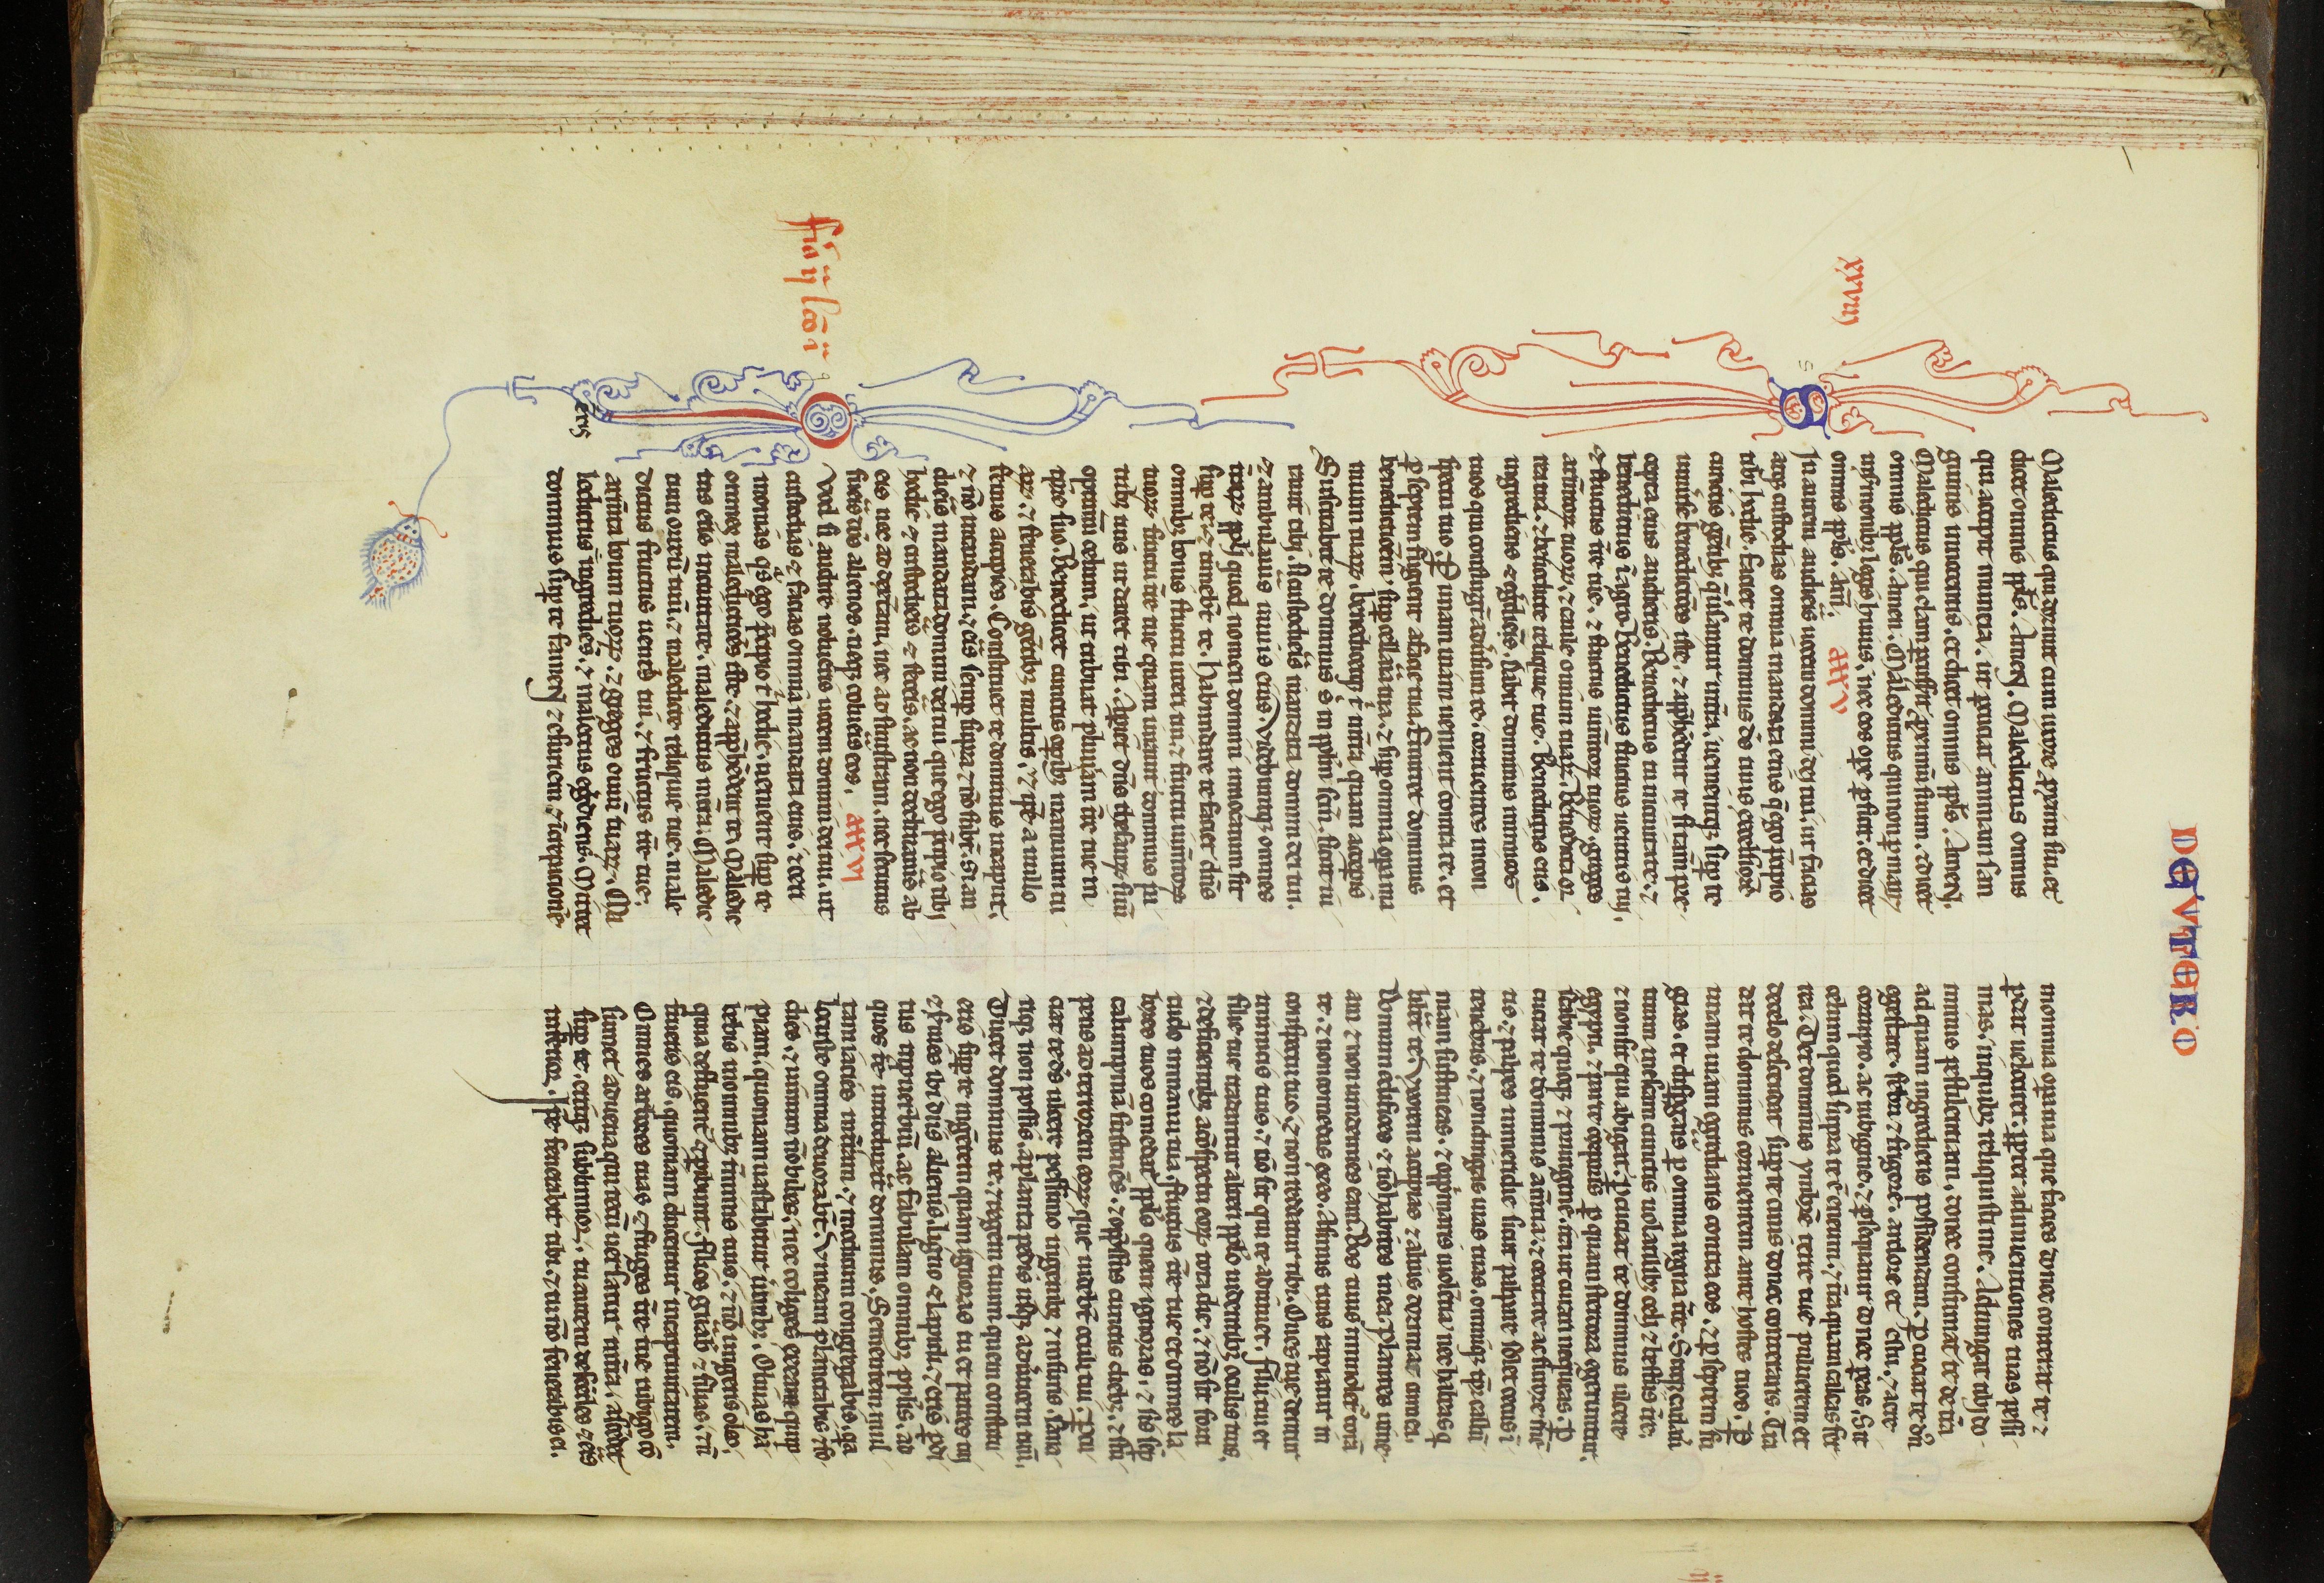 DEUTERO
Maledictus qui dormit cum uxore pximi sui. et
dicet omnis ppłs. Amen. Maledictus omnis
qui accipit munera. ut peuciat animam san
guinis innocentis. et dicet omnis ppłs. Amen.
Maledictus qui clam pcusserit pximū suum. et dicet
omnis ppłs. Amen. Maledictus qui non pmanz
in sermonibȝ legis huius. nec eos ope pficit. et dicet
omnis ppłs. Am̄. xxv
xxviii
Si autem audieris uocem domini dei tui. ut facias
atqȝ custodias omnia mandata eius q̄ ego p̄cipio
tibi hodie. faciet te dominus dēs tuus excelsiorē
cunctis gentibȝ que usantur in tr̄a. uenientqȝ sup te
uniuse benedictiōes iste. ⁊ appħēdent te. si tam̄ pre
cepta eius audieris. Benedictus tu in ciuitate. ⁊
benedictus ī agro. Benedictus fructus uentris tui.
⁊ fructus tr̄e tue. ⁊ fructus iumētoꝝ tuoꝝ. greges
armētoꝝ tuoꝝ. ⁊ caule ouium tuaꝝ. Benedicta or
rea tua. ⁊ benedicte reliquie tue. Benedictus eris.
ingrediens ⁊ egrediens. Dabit dominus inimicos
tuos qui consurgūt aduersum te. corruentes in con
spectu tuo. P unam uiam uenient contra te. et
p septem fugient a facie tua. Emittet dominus
benedictionem sup cellaria tua. ⁊ sup omnia opa ma
nuum tuaꝝ. benedicetqȝ t̄ in terra quam acceperis
Suscitabit te dominus s̄ in pplm scm̄. sicut iu
rauit tibi. si custodieris mandata domini dei tui.
⁊ ambulaueris in uiis eius. Videbuntqȝ omnes
traꝝ ppłi quod nomen domini inuocatum sit
sup te. ⁊ timebūt te. Habundare te faciet dn̄s
omnibȝ bonis. fructu uteri tui. ⁊ fructu iumētoꝝ
tuoꝝ. fructu tr̄e tue quam iurauit dominus pa
tribȝ tuis ut daret tibi. Apiet dn̄s thesauꝝ suū
optimum celum. ut tribuat pluuiam tr̄e tue in
tpr̄e suo. Benedicet cunctis opibȝ manuum tu
aꝝ. ⁊ fenerabis gētibȝ multis. ⁊ ip̄e a nullo
fenus accipies. Constituet te dominus in caput.
⁊ nō in caudam. ⁊ eris semp supra ⁊ nō subt̄. si au
dieris mandata domini dei tui que ego p̄cipio tibi
hodie. ⁊ custodieris ⁊ feceris. ac non declinaueris ab
eis nec ad dext̄am. nec ad sinistram. nec secutus
fueris dēos alienos. neqȝ colueris eos. xxvi
fr̄ iiij lcō ii
Quod si audire nolueris uocem domini dei tui. ut
custodias ⁊ facias omnia mandata eius. ⁊ ceri
monias q̄s ego p̄cipio t̄ hodie. uenient sup te
omnes maledictiōes iste. ⁊ appħēdent te. Maledic
tus eris in ciuitate. maledictus in agro. Maledic
tum orreū tuū. ⁊ maledicte reliquie tue. male
dictus fructus uentris tui. ⁊ fructus tr̄e tue.
armēta boum tuoꝝ. ⁊ greges ouiū tuaꝝ. Ma
eris
ledictus ingrediens. ⁊ maledictus egrediens. Mittet
dominus sup te famem ⁊ esuriem ⁊ increpationē
in omnia opa tua que facies donec conterat te ⁊
pdat uelociter. ppter adinuentiones tuas pessi
mas. in quibȝ reliquisti me. Adiungat tibi do
minus pestilentiam. donec consumat te de tr̄a
ad quam ingrederis possidendam. Pcuciat te dn̄s
egestate. febri ⁊ frigore. ardore et estu. ⁊ aere
corrupto. ac rubigine. ⁊ psequatur donec peas. Sit
celum quod supra te ē eneum. ⁊ tr̄a quam calcas fer
rea. Det dominus ymbrē terre tue puluerem et
de celo descendat sup te cinis donec conteraris. Tra
dat te dominus corruentem ante hostes tuos. P
unam uiam egrediaris contra eos. ⁊ p septem fu
gias. et dispgaris p omnia regna tr̄e. Sitqȝ cadau
tuum in escam cunctis uolatilibȝ celi ⁊ bestiis tr̄e.
⁊ non sit qui abigat. Pcuciat te dominus ulcere
egypti. ⁊ parte corporis p quam stercora egeruntur.
scabie quoqȝ ⁊ prurigine. ita ut curari nequeas. P
cuciat te dominus amētia ⁊ cecitate ac furore mē
tis. ⁊ palpes in meridie sicut palpare solet cecus ī
tenebris. ⁊ non dirigas uias tuas. omniqȝ tp̄re calūp
niam sustineas. ⁊ opprimaris uiolētia. nec habeas q
libet te. Vxorem accipias ⁊ alius dormiat cum ea.
Domum edifices ⁊ nō habites in ea. Plantes uine
am ⁊ non uindemies eam. Bos tuus immolet̄ corā
te. ⁊ non comedas ex eo. Asinus tuus rapiatur in
conspectu tuo. ⁊ non reddatur tibi. Oues tue dentur
inimicis tuis. ⁊ nō sit qui te adiuuet. Filii tui et
filie tue tradantur altri pplo uidentibȝ oculis tuis.
⁊ deficientibȝ ad conspectum eoꝝ tota die. ⁊ nō sit forti
tudo in manu tua. fructus tr̄e tue et omnes la
bores tuos comedat ppłs quem ignoras. ⁊ sis semp
calumpniā sustinēs. ⁊ oppressus cunctis diebȝ. ⁊ stu
pens ad terrorem eoꝝ que uidebūt oculi tui. Pcu
ciat te dn̄s ulcere pessimo in genibȝ ⁊ in suris. sana
riqȝ non possis. a planta pedis usqȝ ad uticem tuū.
Ducet dominus te ⁊ regem tuum quem constitu
eris sup te in gentem quam ignoras tu et patres tui
⁊ seruies ibi diis alienis. ligno ⁊ lapidi. ⁊ eris pdi
tus in puerbiū. ac fabulam omnibȝ pplis. ad
quos te introduxerit dominus. Sementem mul
tam iacies in tr̄am. ⁊ modicum congregabis. qa
locuste omnia deuorabūt. Vineam plantabis ⁊ fo
dies. ⁊ uinum nō bibes. nec colliges ex ea quip
piam. quoniam uastabitur uermibȝ. Oliuas ha
bebis in omnibȝ t̄minis tuis. ⁊ nō ungeris oleo.
quia defluent ⁊ pibunt. Filios gn̄abis ⁊ filias. ⁊ nō
frueris eis. quoniam ducentur in captiuitatem.
Omnes arbores tuas ⁊ fruges tr̄e tue rubigo cō
sumet. aduena qui tecū uersatur in tr̄a. ascendet
sup te. eritqȝ sublimior. tu autem descēdes ⁊ eris
inferior. Ipse fenerabit tibi. ⁊ tu nō fenerabis ei.